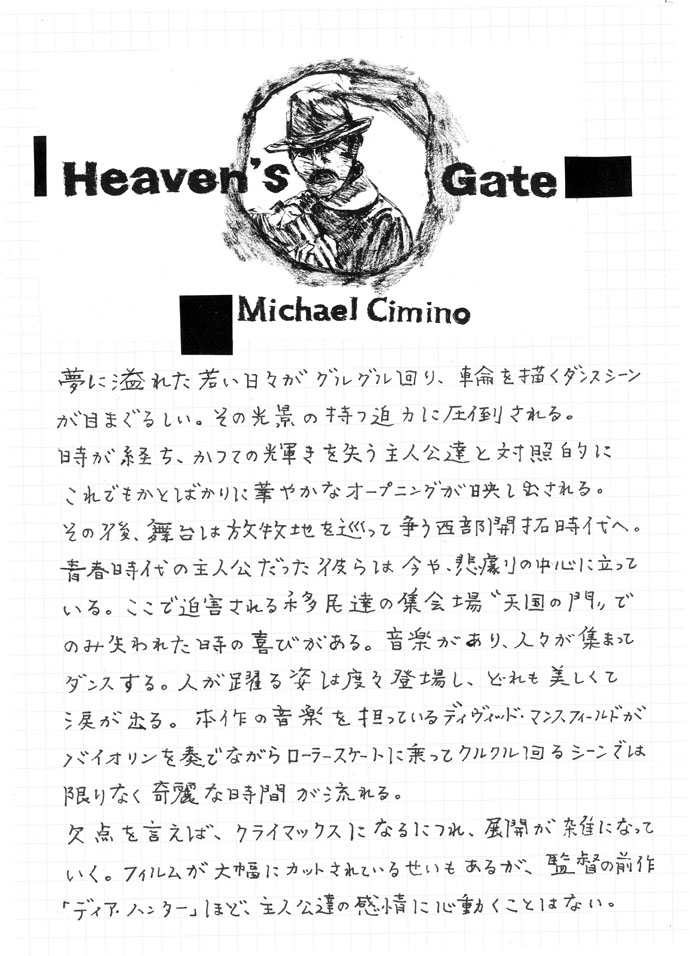 Heaven's Gate
Michael Cimino
夢に溢れた若い日々がグルグル回り、車輪を描くダンスシーン
が目まぐるしい。その光景の持つ迫力に圧倒される。
時が経ち、かつての輝きを失う主人公達と対照的に
これでもかとばかりに華やかなオープニングが映し出される。
その後、舞台は放牧地を巡って争う西部開拓時代へ。
青春時代の主人公だった彼らは今や、悲劇の中心に立って
いる。ここで迫害される移民達の集会場〝天国の門〟で
のみ失われた時の喜びがある。音楽があり、人々が集まって
ダンスする。人が躍る姿は度々登場し、どれも美しくて
涙が出る。本作の音楽を担っているディヴィッド・マンスフィールドが
バイオリンを奏でながらローラースケートに乗ってクルクル回るシーンでは
限りなく奇麗な時間が流れる。
欠点を言えば、クライマックスになるにつれ、展開が雑になって
いく。フィルムが大幅にカットされているせいもあるが、監督の前作
「ディア・ハンター」ほど、主人公達の感情に心動くことはない。